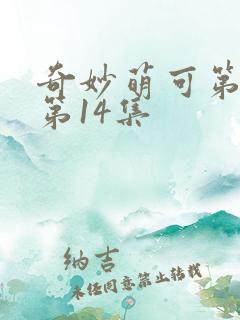 奇妙萌可第
第14集
纳吉
未经同意禁止转载